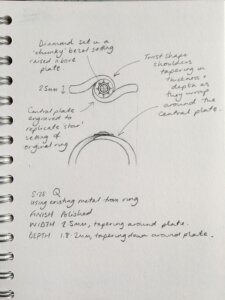 Diamond set in a
'chunky' bezel setting
raised above
plate.
Twist shape
shoulders
tapering in
thickness +
depth as
they wrap
around the
central plate.
Central plate
engraved to
replicate 'star'
setting of
original ring
SIZE Q
using existing metal from ring
FINISH Polished
WIDTH 2.5mm, tapering around plate.
DEPTH 1.8-2mm, tapering down around plate.